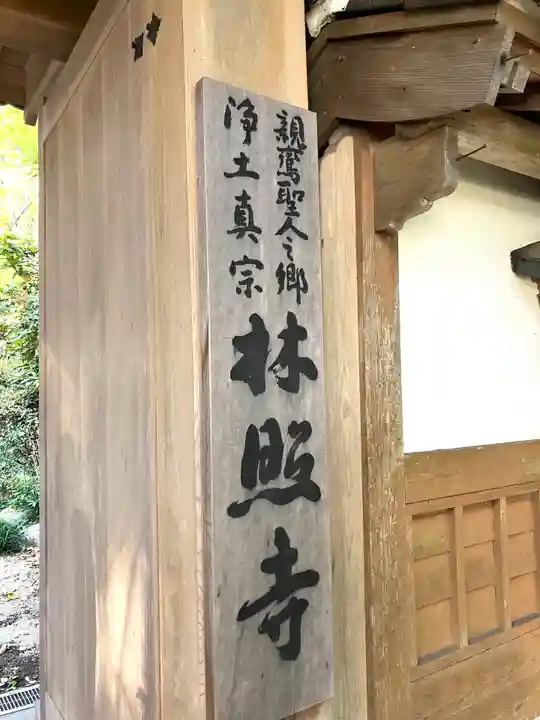 親鸞聖人之郷
浄土真宗
林照寺